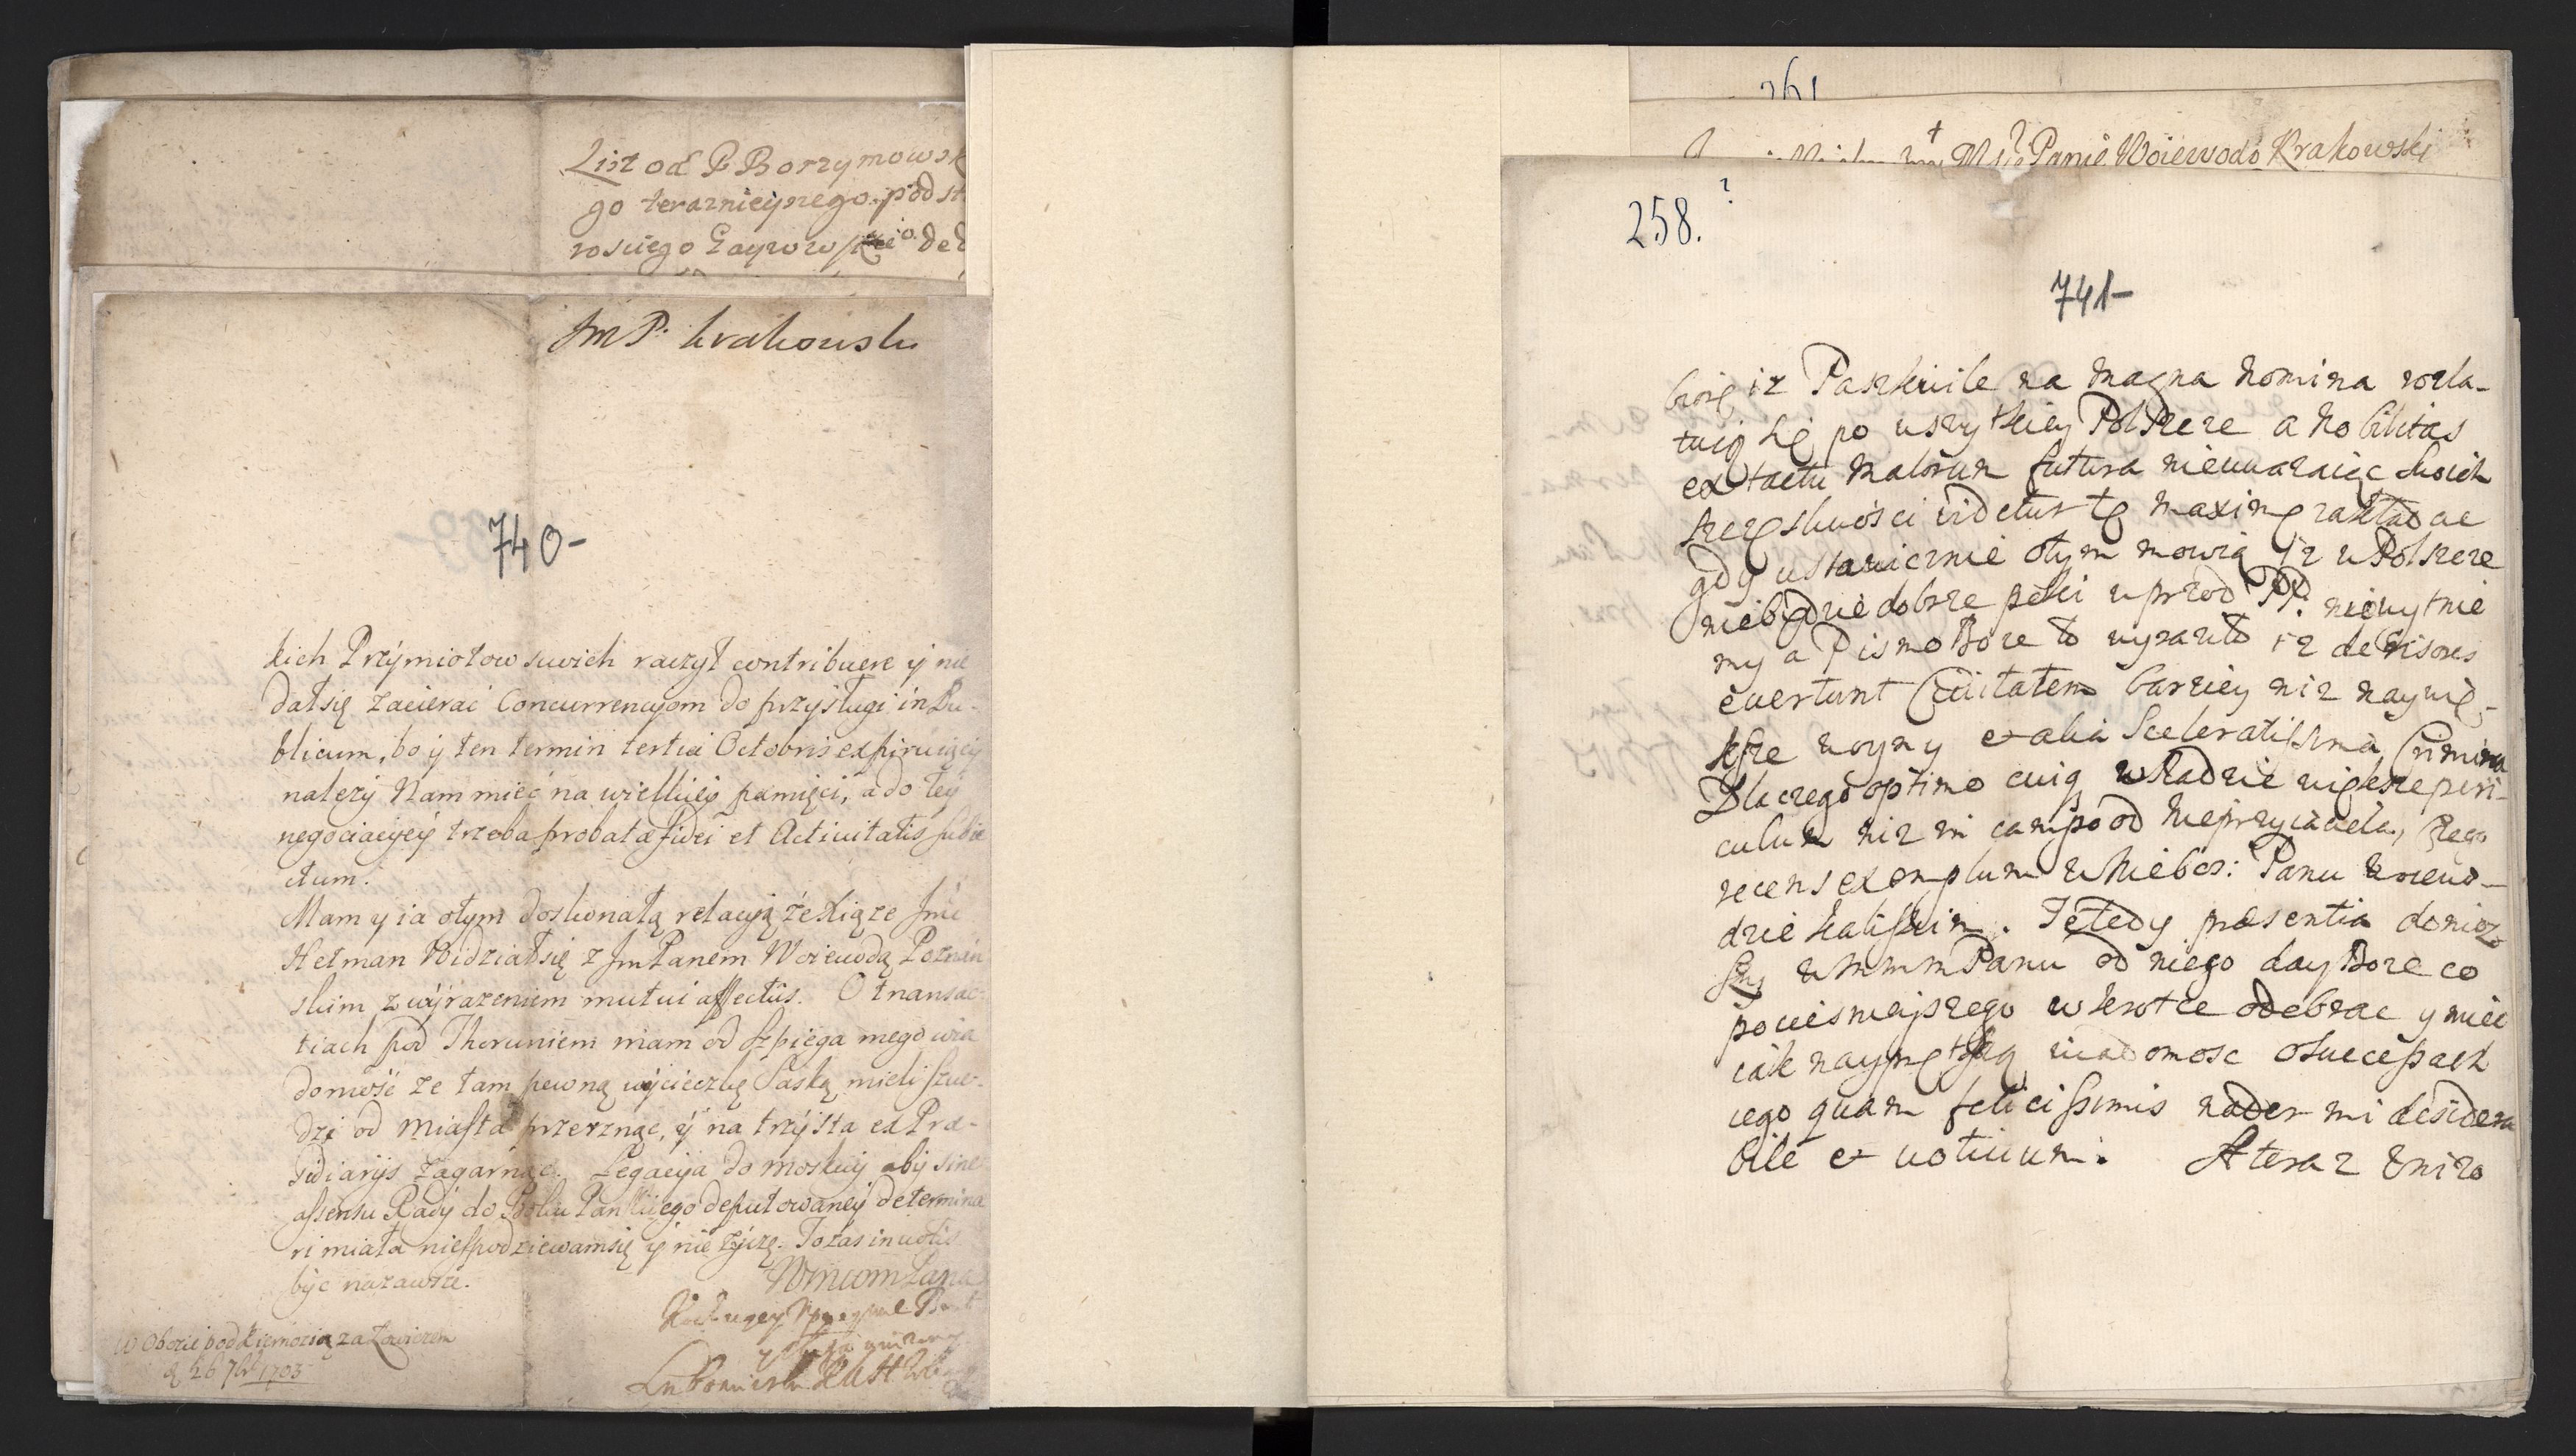 List od P Borzymowsk
go teraznieyszego podst
rosciego Gaywowskieº ded
Jm P. krakowski
740-
kich Przymiotow swoich raczył contribuere ÿ nie
dał się zacierać Concurrencyom do przysługi in Pu-
blicum, bo ÿ ten termin tertia Octobris expiruiącÿ
należÿ Nam mieć na wielkieÿ pamięci, a do teÿ
negociacÿeÿ trzeba probatæ fidei et Activitatis subie
ctum.
Mam y ia otym doskonałą relacyą że Xiąze Jmć
Hetman Widział się z Jm Panem Woiewodą Poznań
skim z wÿrazeniem mutui affectus. O transac-
tiach pod Thoruniem mam od szpiega mego wia
domość ze tam pewną wÿcieczkę Saską mieli szwe-
dzi od miasta przerznąc, ÿ na trzÿsta ex Præ-
sidiarÿs zagarnąć. Legacÿa do moskwÿ abÿ sine
assensu Radÿ do Boku Pańskiego deputowaneÿ determina
ri miała niespodziewam się ÿ nie zÿczę. To zas in votis
bÿc nazawsze.
WmcomPana
W Obozie pod Kiernozią za Łowiczem
d 26 7br 1703
261
Panie Woiewodo Krakowski
258.?
741-
iz Paszkwile na magna nomina rozla-
tuią się po wszytkiey Polszcze a nobilitas
ex tactu malorum futura nieuwazaiąc swoich
szczęsliwości videtur tę maxime zaktadac
gdy ustawicznie otym mowią iz w Polszcze
niebędzie dobrze poki wprzod PP. niewytnie
my a Pismo Boze to wyraziło iz derisores
evertunt Civitatem barziey niz naywię-
ksze woyny et alia Sceleratissima Crimina
Dlaczego optimo cuiq w Radzie większe peri-
culum niz in campo od nieprzyiaciela, czego
recens exemplum w Niebos: Panu Woiewo-
dzie kaliskim. Te tedy præsentia donioz
szy WMMMPanu od niego day Boze co
pocieszniejszego wkrotce odebrac y miec
iak nayprętszą wiadomosc o Successach
iego quam felicissimis nader mi desidera
bile et votivum. A teraz Unizo